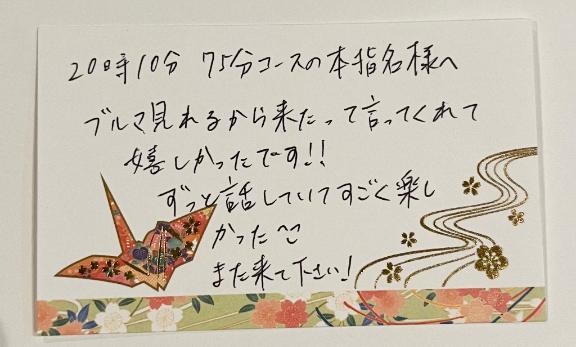 20時10分 75分コースの本指名様へ
ブルマ見れるから来たって言ってくれて
嬉しかったです!!
ずっと話していてすごく楽し
かった^^
また来て下さい!